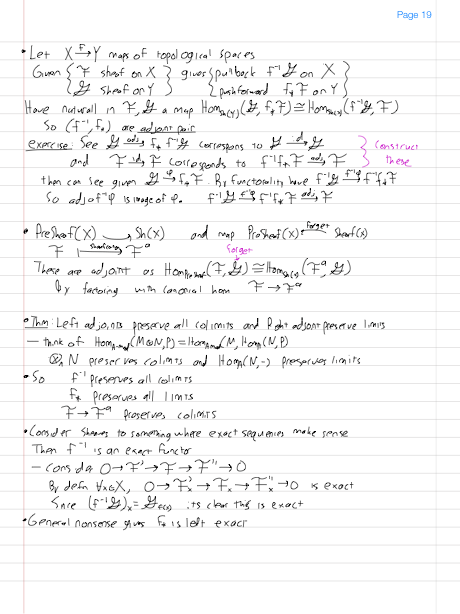 Page 19
• Let X →f Y maps of topological spaces
Given { F sheaf on X } gives { pullback f⁻¹G on X }
{ G sheaf on Y } { pushforward f_*F on Y }
Have natural in F, G a map Hom_Sh(Y)(G, f_*F) ≅ Hom_Sh(X)(f⁻¹G, F)
So (f⁻¹, f_*) are adjoint pair
exercise: See G →adj f_* f⁻¹G corresponds to G →id G } Construct
and F →id F corresponds to f⁻¹f_*F →adj F } these
then can see given G →φ f_*F. By functoriality have f⁻¹G →f⁻¹φ f⁻¹f_*F
So adj of φ is image of φ. f⁻¹G →f⁻¹φ f⁻¹f_*F →adj F
• PreSheaf(X) → Sh(X) and map PreSheaf(X) ←forget Sheaf(X)
F ↦sheafification F^a forget
These are adjoint as Hom_PreSheaf(F, G) ≅ Hom_Sh(X)(F^a, G)
by factoring with canonical hom F → F^a
• Thm: Left adjoints preserve all colimits and Right adjoint preserve limits
– think of Hom_A-mod(M⊗N, P) = Hom_A-mod(M, Hom(N, P))
⊗_A N preserves colimits and Hom_A(N, –) preserves limits
• So f⁻¹ preserves all colimits
f_* preserves all limits
F → F^a preserves colimits
• Consider sheaves to something where exact sequences make sense
Then f⁻¹ is an exact functor
– consider 0 → F' → F → F'' → 0
By defn ∀x∈X, 0 → F'_x → F_x → F''_x → 0 is exact
Since (f⁻¹G)_x = G_f(x) its clear this is exact
• General nonsense gives f_* is left exact